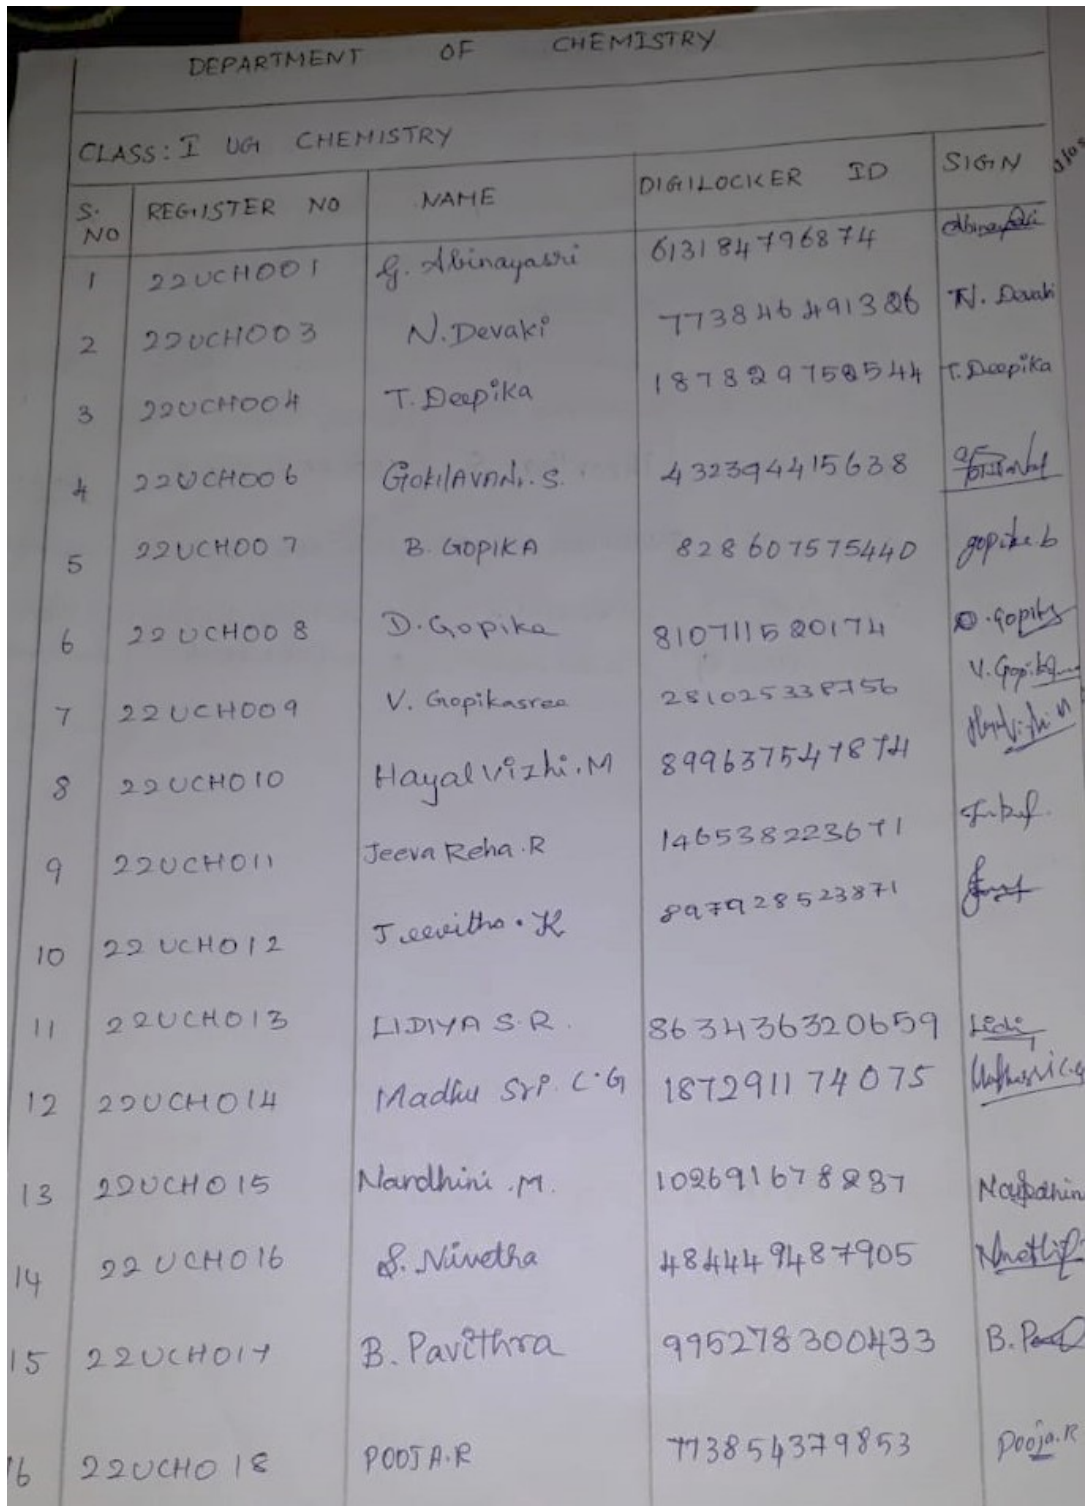 DEPARTMENT OF CHEMISTRY
CLASS: I UG CHEMISTRY
S. NO REGISTER NO NAME DIGILOCKER ID SIGN
1 22UCH001 G. Abinayasri 613184796874
2 22UCH003 N. Devaki 773846491326 N. Devaki
3 22UCH004 T. Deepika T. Deepika
4 22UCH006 GOKILAVANI. S. 432394415638
5 22UCH007 B. GOPIKA 828607575440 gopika.b
6 22UCH008 D. Gopika 810711520174 D. Gopika
7 22UCH009 V. Gopikasree 281025338756 V. Gopika
8 22UCH010 Hayalvizhi. M 899637547874
9 22UCH011 Jeeva Reha. R 146538223671
10 22UCH012 Jeevitha. K 897928523871
11 22UCH013 LIDIYA S.R. 863436320659
12 22UCH014 Madhu Sri. C.G 187291174075
13 22UCH015 Nardhini. M. 102691678237
14 22UCH016 S. Nivetha 484449487905
15 22UCH017 B. Pavithra 995278300433
16 22UCH018 POOJA.R 773854379853 Pooja.R